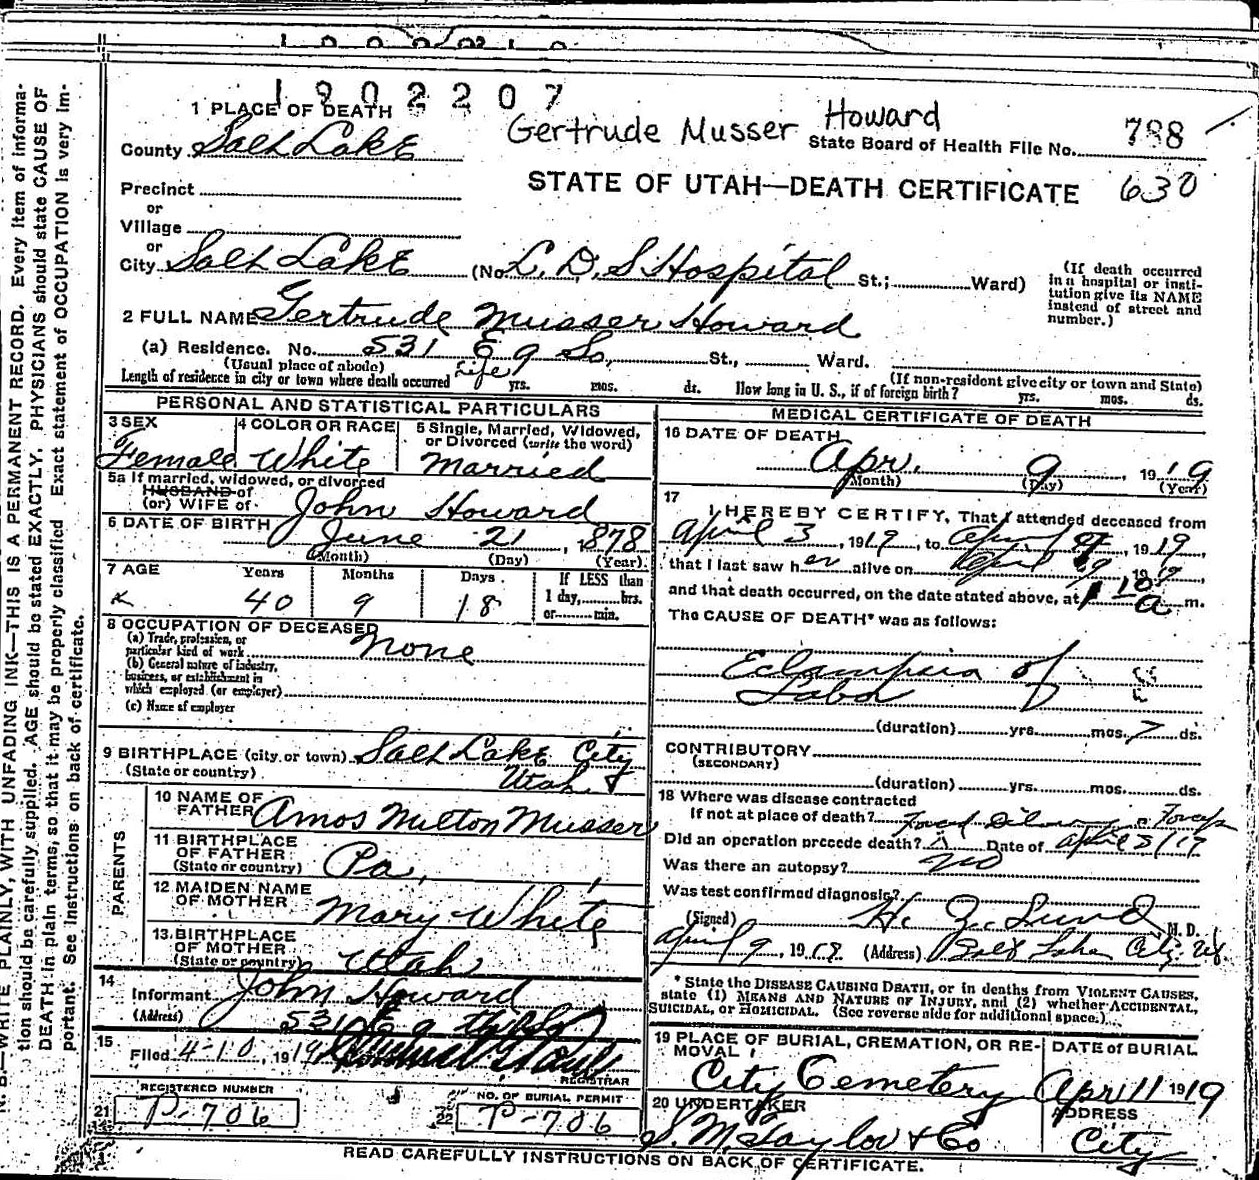 1902207
1 PLACE OF DEATH
Gertrude Musser Howard
State Board of Health File No. 788
County Salt Lake
STATE OF UTAH—DEATH CERTIFICATE 630
Precinct
or
Village
or
City Salt Lake (No. L. D. S Hospital St.; Ward)
(If death occurred in a hospital or institution give its NAME instead of street and number.)
2 FULL NAME Gertrude Musser Howard
(a) Residence. No. 531 E 9 So. St., Ward.
(Usual place of abode) (If non-resident give city or town and State)
Length of residence in city or town where death occurred Life yrs. mos. ds. How long in U. S., if of foreign birth? yrs. mos. ds.
PERSONAL AND STATISTICAL PARTICULARS
3 SEX Female
4 COLOR OR RACE White
5 Single, Married, Widowed, or Divorced (write the word) Married
5a If married, widowed, or divorced
HUSBAND of
(or) WIFE of John Howard
6 DATE OF BIRTH June 21, 1878
(Month) (Day) (Year)
7 AGE Years Months Days If LESS than
40 9 18 1 day, hrs.
or min.
8 OCCUPATION OF DECEASED
(a) Trade, profession, or
particular kind of work None
(b) General nature of industry,
business, or establishment in
which employed (or employer)
(c) Name of employer
9 BIRTHPLACE (city or town) Salt Lake City
(State or country) Utah
PARENTS
10 NAME OF FATHER Amos Milton Musser
11 BIRTHPLACE OF FATHER (State or country) Pa.
12 MAIDEN NAME OF MOTHER Mary White
13 BIRTHPLACE OF MOTHER (State or country) Utah
14
Informant John Howard
(Address) 531 E 9
15
Filed 4-10, 1919
REGISTRAR
REGISTERED NUMBER
21 P-706
NO. OF BURIAL PERMIT
22 P-706
MEDICAL CERTIFICATE OF DEATH
16 DATE OF DEATH
Apr. 9, 1919
(Month) (Day) (Year)
17
I HEREBY CERTIFY, That I attended deceased from
April 3, 1919, to April 9, 1919,
that I last saw her alive on April 9, 1919,
and that death occurred, on the date stated above, at 1 10 a m.
The CAUSE OF DEATH* was as follows:
Eclampsia of
Labor
(duration) yrs. mos. 7 ds.
CONTRIBUTORY
(SECONDARY)
(duration) yrs. mos. ds.
18 Where was disease contracted
If not at place of death? Forced
Did an operation precede death? Date of April
Was there an autopsy? No
Was test confirmed diagnosis?
(Signed) H. Z. Lund, M. D.
April 9, 1919 (Address) Salt Lake City, Ut.
* State the DISEASE CAUSING DEATH, or in deaths from VIOLENT CAUSES,
state (1) MEANS AND NATURE OF INJURY, and (2) whether ACCIDENTAL,
SUICIDAL, or HOMICIDAL. (See reverse side for additional space.)
19 PLACE OF BURIAL, CREMATION, OR REMOVAL
City Cemetery
DATE of BURIAL
Apr 11 1919
20 UNDERTAKER
S. M. Taylor & Co
ADDRESS
City
READ CAREFULLY INSTRUCTIONS ON BACK OF CERTIFICATE.
N. B.—WRITE PLAINLY, WITH UNFADING INK—THIS IS A PERMANENT RECORD. Every item of information should be carefully supplied. AGE should be stated EXACTLY. PHYSICIANS should state CAUSE OF DEATH in plain terms, so that it may be properly classified. Exact statement of OCCUPATION is very important. See instructions on back of certificate.